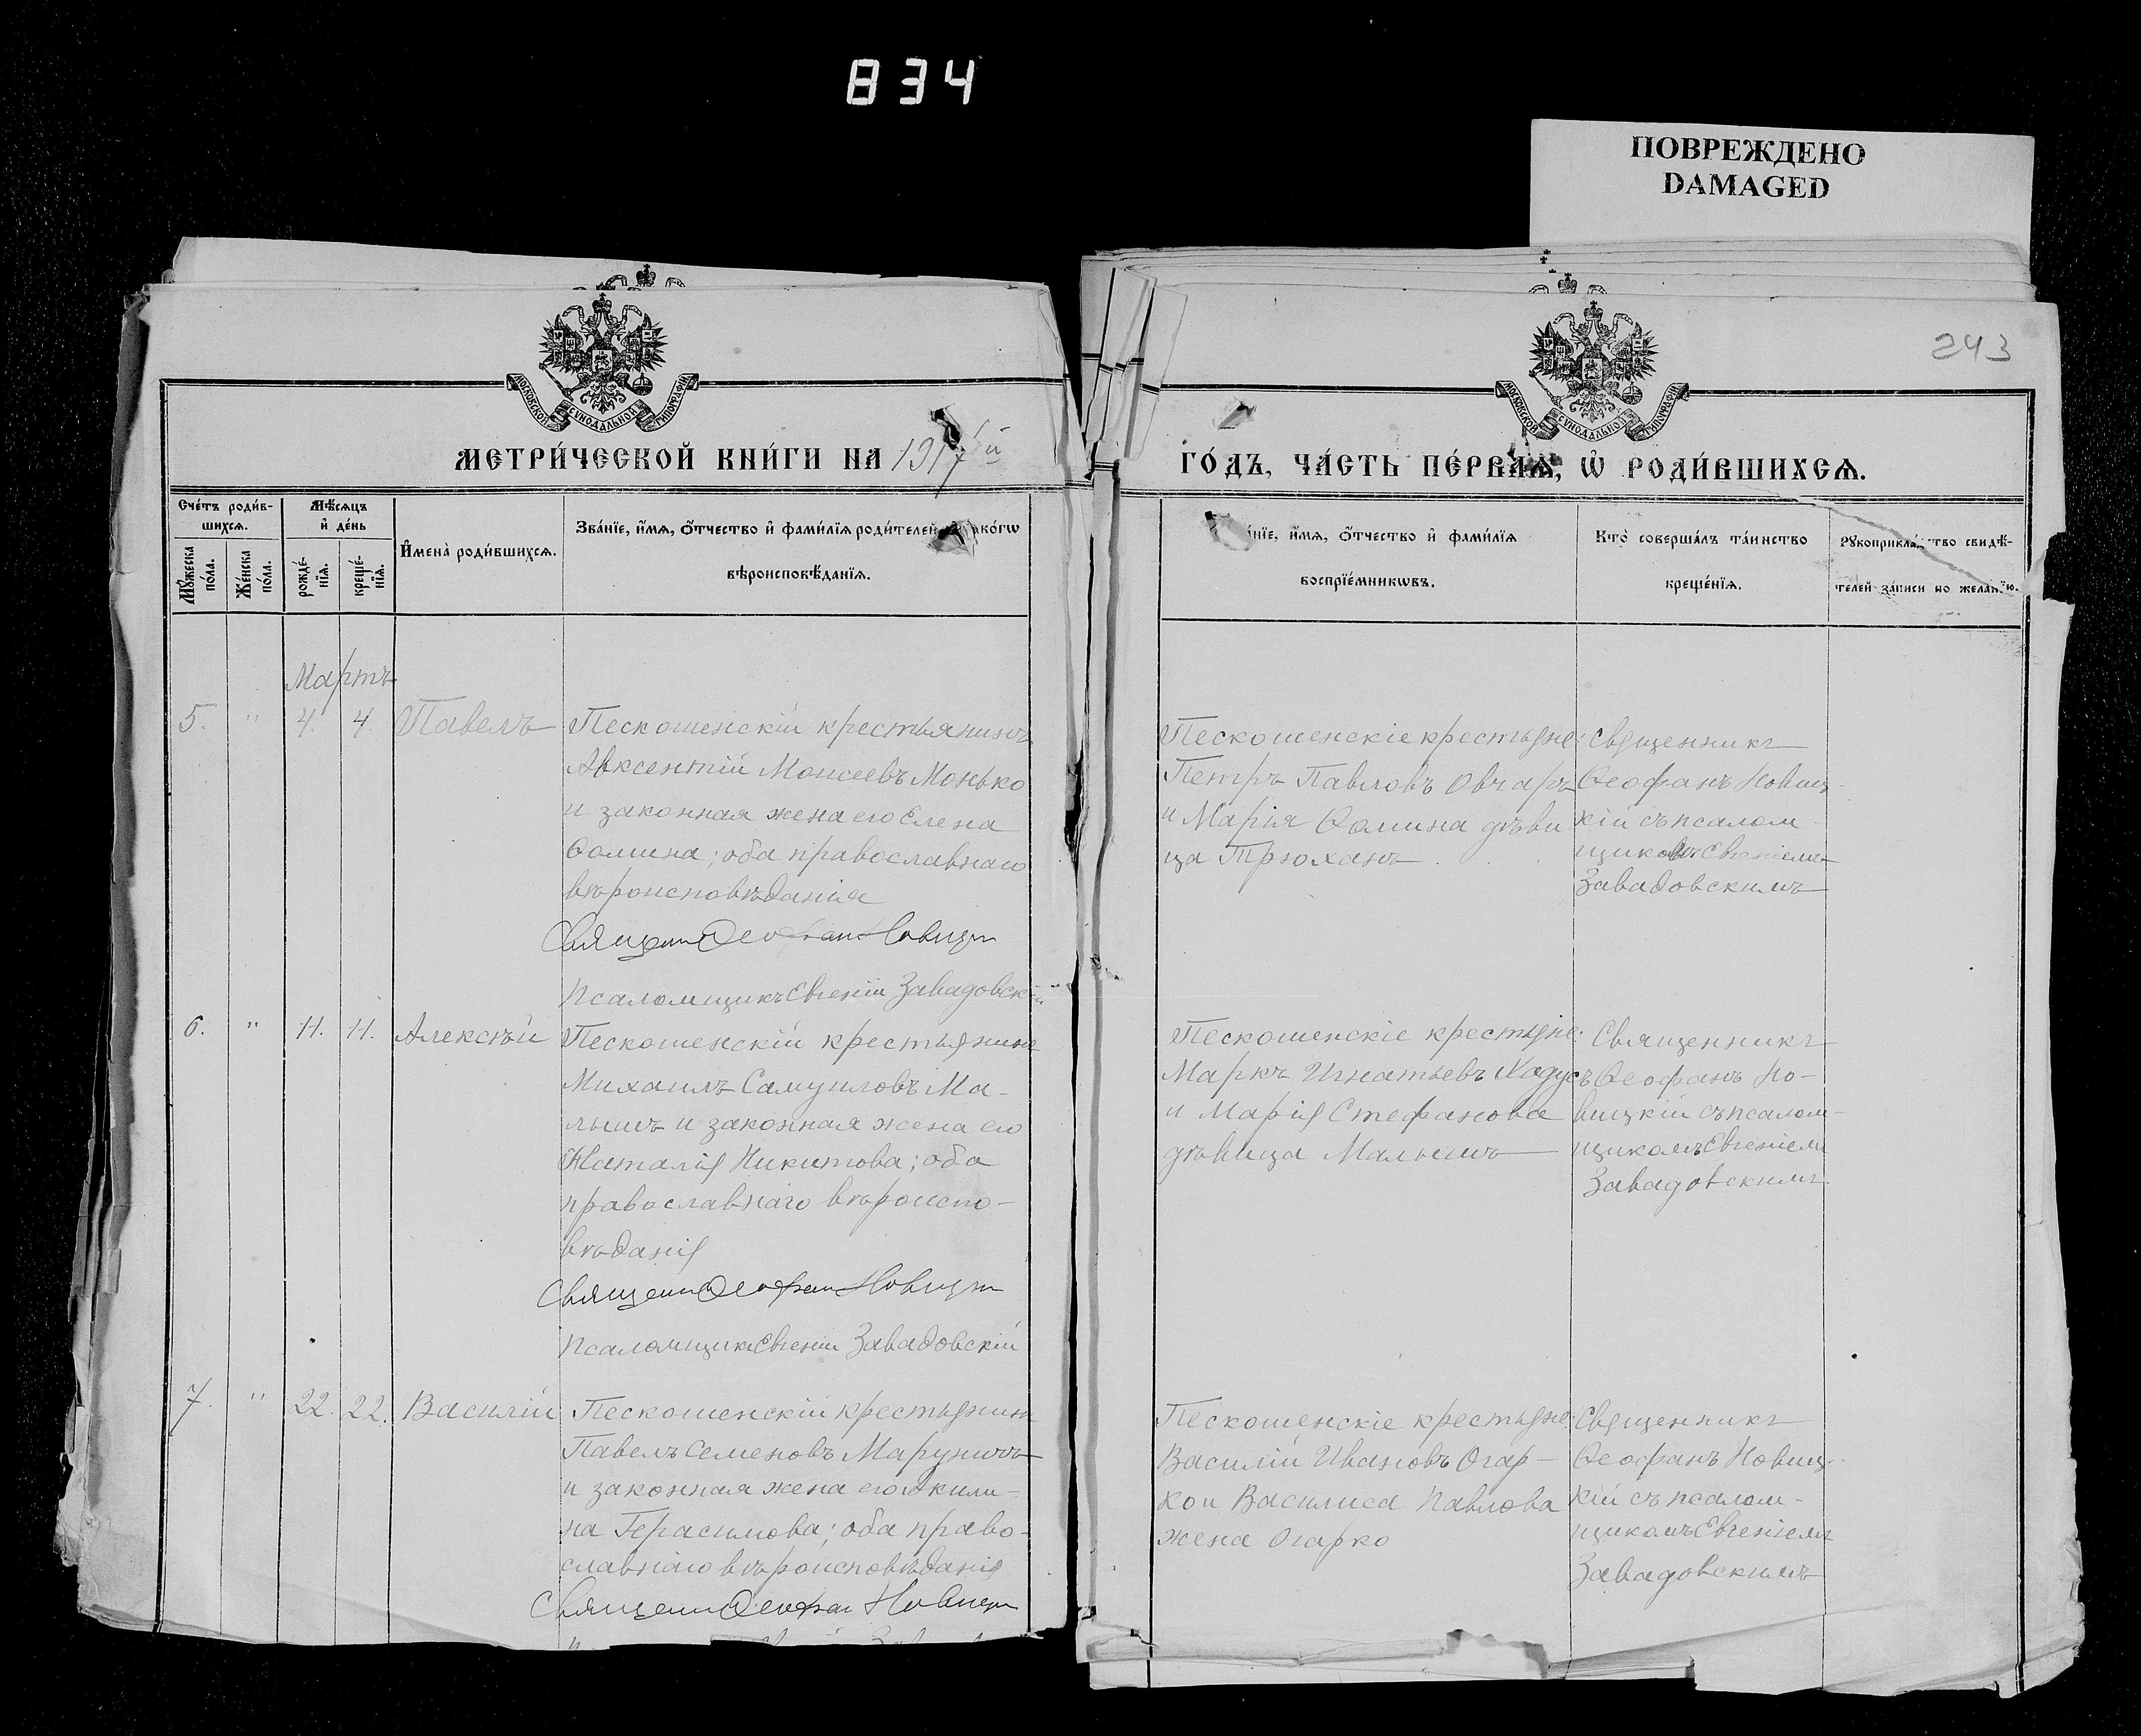 834
ПОВРЕЖДЕНО
DAMAGED
243
МОСКОВСКОЙ СѴНОДАЛЬНОЙ ТИПОГРАФІИ
МОСКОВСКОЙ СѴНОДАЛЬНОЙ ТИПОГРАФІИ
МЕТРИ́ЧЕСКОЙ КНИ́ГИ НА 1917 й
ГО́ДЪ, ЧА́СТЬ ПЕ́РВАѦ, Ѡ҆ РОДИ́ВШИХСѦ.
Сче́тъ роди́в-
шихсѧ.
Мꙋ́жеска по́ла.
Же́нска по́ла.
Мѣ́сѧцъ
и҆ де́нь
рожде́-
нїѧ.
креще́-
нїѧ.
И҆мена̀ роди́вшихсѧ.
Зва́нїе, и҆́мѧ, ѻ҆́тчество и҆ фами́лїѧ роди́телей, ако́гѡ
вѣроисповѣ́данїѧ.
нїе, и҆́мѧ, ѻ҆́тчество и҆ фами́лїѧ
воспрїе́мникѡвъ.
Кто̀ соверша́лъ та́инство
креще́нїѧ.
Рꙋкоприкла́ тво свидѣ́-
телей за́писи по жела́нїю.
Мартъ
5. " 4. 4. Павелъ
Пескошенскій крестьянинъ
Авксентій Моисеевъ Монько
и законная жена его Елена
Ѳомина; оба православнаго
вѣроисповѣданія
Священ Ѳеофан Новицк
Псаломщикъ Евгеній Завадовскій
Пескошенскіе крестьяне:
Петръ Павловъ Овчаръ
и Марія Ѳомина дѣви
ца Трюханъ
Священникъ
Ѳеофанъ Новиц-
кій съ псалом-
щикомъ Евгеніемъ
Завадовскимъ
6. " 11. 11. Алексѣй
Пескошенскій крестьянинъ
Михаилъ Самуиловъ Ма-
лышъ и законная жена его
Наталія Никитова; оба
православнаго вѣроиспо-
вѣданія
Священ Ѳеофан Новицк
Псаломщикъ Евгеній Завадовскій
Пескошенскіе крестьяне:
Маркъ Игнатьевъ Хадусъ
и Марія Стефанова
дѣвица Малышъ
Священникъ
Ѳеофанъ Но-
вицкій съ псалом-
щикомъ Евгеніем
Завадовскимъ
7. " 22. 22. Василій
Пескошенскій крестьянинъ
Павелъ Семеновъ Маруничъ
и законная жена его Акили-
на Герасимова; оба право-
славнаго вѣроисповѣданія
Священ Ѳеофан Новицк
Пескошенскіе крестьяне:
Василій Ивановъ Огар-
ко и Василиса Павлова
жена Огарко
Священникъ
Ѳеофанъ Новиц-
кій съ псалом-
щикомъ Евгеніемъ
Завадовскимъ